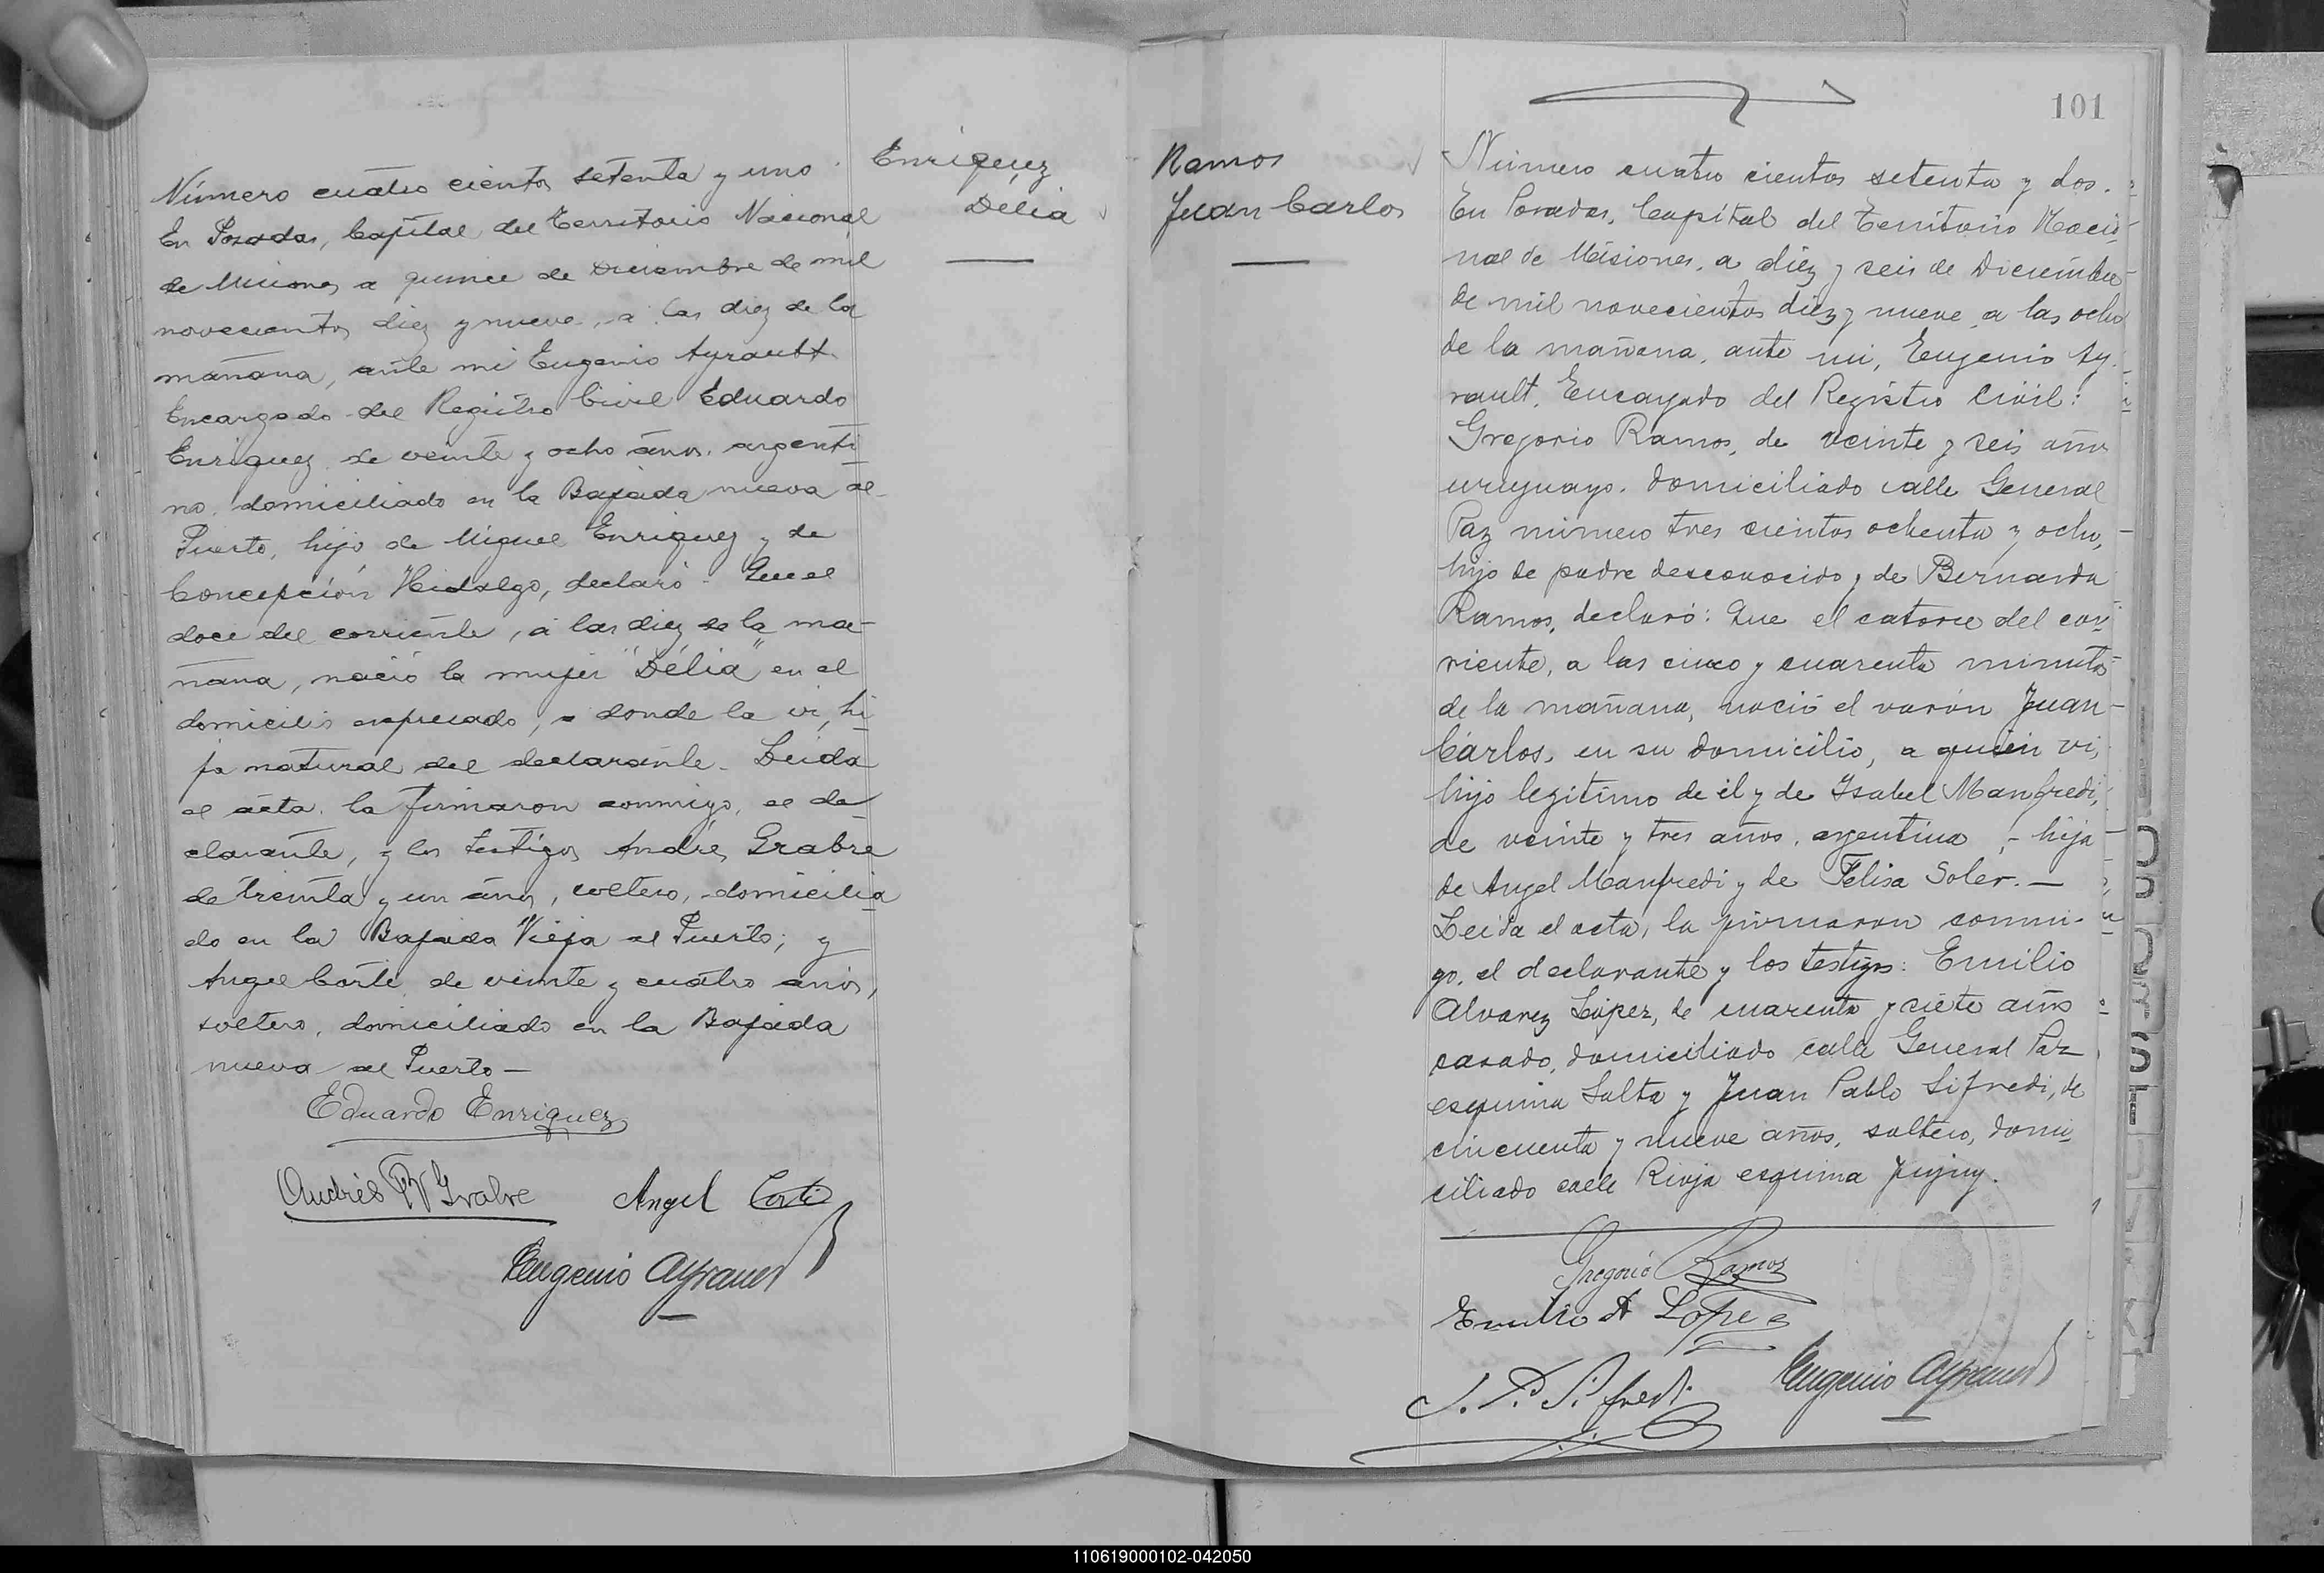 Enriquez
Délia
Número cuatro cientos setenta y uno
En Posadas, Capital del Territorio Nacional
de Misiones a quince de Diciembre de mil
novecientos diez y nueve, a las diez de la
mañana, ante mi Eugenio Ayrault
Encargado del Registro Civil Eduardo
Enriquez de veinte y ocho años, argenti
no, domiciliado en la Bajada nueva al
Puerto, hijo de Miguel Enriquez y de
Concepción Hidalgo, declaró: Que el
doce del corriente, a las diez de la ma-
ñana, nació la mujer "Délia" en el
domicilio expresado, a donde la vi, hi
ja natural del declarante. Leida
el acta, la firmaron conmigo, el de
clarante, y los testigos Andrés Grabre
de treinta y un años, soltero, domicilia
do en la Bajada Vieja al Puerto; y
Angel Corti de veinte y cuatro años,
soltero, domiciliado en la Bajada
nueva al Puerto —
Eduardo Enriquez
Andrés Angel Corti
Eugenio Ayrault
101
Ramos
Juan Carlos
Número cuatro cientos setenta y dos.
En Posadas, Capital del Territorio Nacio
nal de Misiones, a diez y seis de Diciembre
de mil novecientos diez y nueve, a las ocho
de la mañana, ante mi, Eugenio Ay
rault, Encargado del Registro Civil:
Gregorio Ramos, de veinte y seis años
uruguayo, domiciliado calle General
Paz número tres cientos ochenta y ocho,
hijo de padre desconocido y de Bernarda
Ramos, declaró: Que el catorce del cor
riente, a las cinco y cuarenta minutos
de la mañana, nació el varón Juan
Cárlos, en su domicilio, a quien vi,
hijo legitimo de él y de Isabel Manfredi,
de veinte y tres años, argentina, - hija
de Angel Manfredi y de Felisa Soler. —
Leida el acta, la firmaron conmi-
go, el declarante y los testigos: Emilio
Alvarez López, de cuarenta y siete años
casado, domiciliado calle General Paz
esquina Salta y Juan Pablo Sifredi, de
cincuenta y nueve años, soltero, domi
ciliado calle Rioja esquina Jujuy.
Gregorio Ramos
Emilio A Lopez
J. P. Sifredi Eugenio Ayrault
110619000102-042050